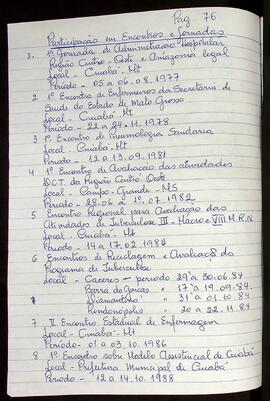 Pag 76
Participação em Encontros e Jornadas
1. 1ª Jornada de Administração Hospitalar
Região Centro-Oeste e Amazonia legal
Local - Cuiabá - Mt
Periodo - 05 a 06.08.1977
2 1º Encontro de Enfermeiros da Secretaria de
Saude do Estado de Mato Grosso
Periodo - 22 a 24.11.1978
3 1º Encontro de Pneumologia Sanitaria
Local - Cuiabá. Mt
Periodo - 12 a 13.09.1981
4 1º Encontro de Avaliação das atividades
D.C.T. da Região Centro Oeste
Local - Campo-Grande - MS
Periodo - 28.06 a 1º.07.1982
5 Encontro Regional para Avaliação das
Atividades de Tuberculose III - Macro e VIII M.R.N.
Local - Cuiabá. Mt
Periodo - 14 a 17.02.1984
6 Encontros de Reciclagem e Avaliação do
Programa de Tuberculose
Local - Caceres - periodo 29 a 30.06.84
Barra do Garças " 17 a 19.09.84
Diamantino " 31 a 01.10.84
Rondonópolis " 20 a 22.11.84
7 II Encontro Estadual de Enfermagem
Local - Cuiabá - Mt
Periodo - 01 a 03.10.1986
8 1º Encontro sobre Modelo Assistencial de Cuiabá
Local - Prefeitura Municipal de Cuiabá
Periodo - 12 a 14.10.1988